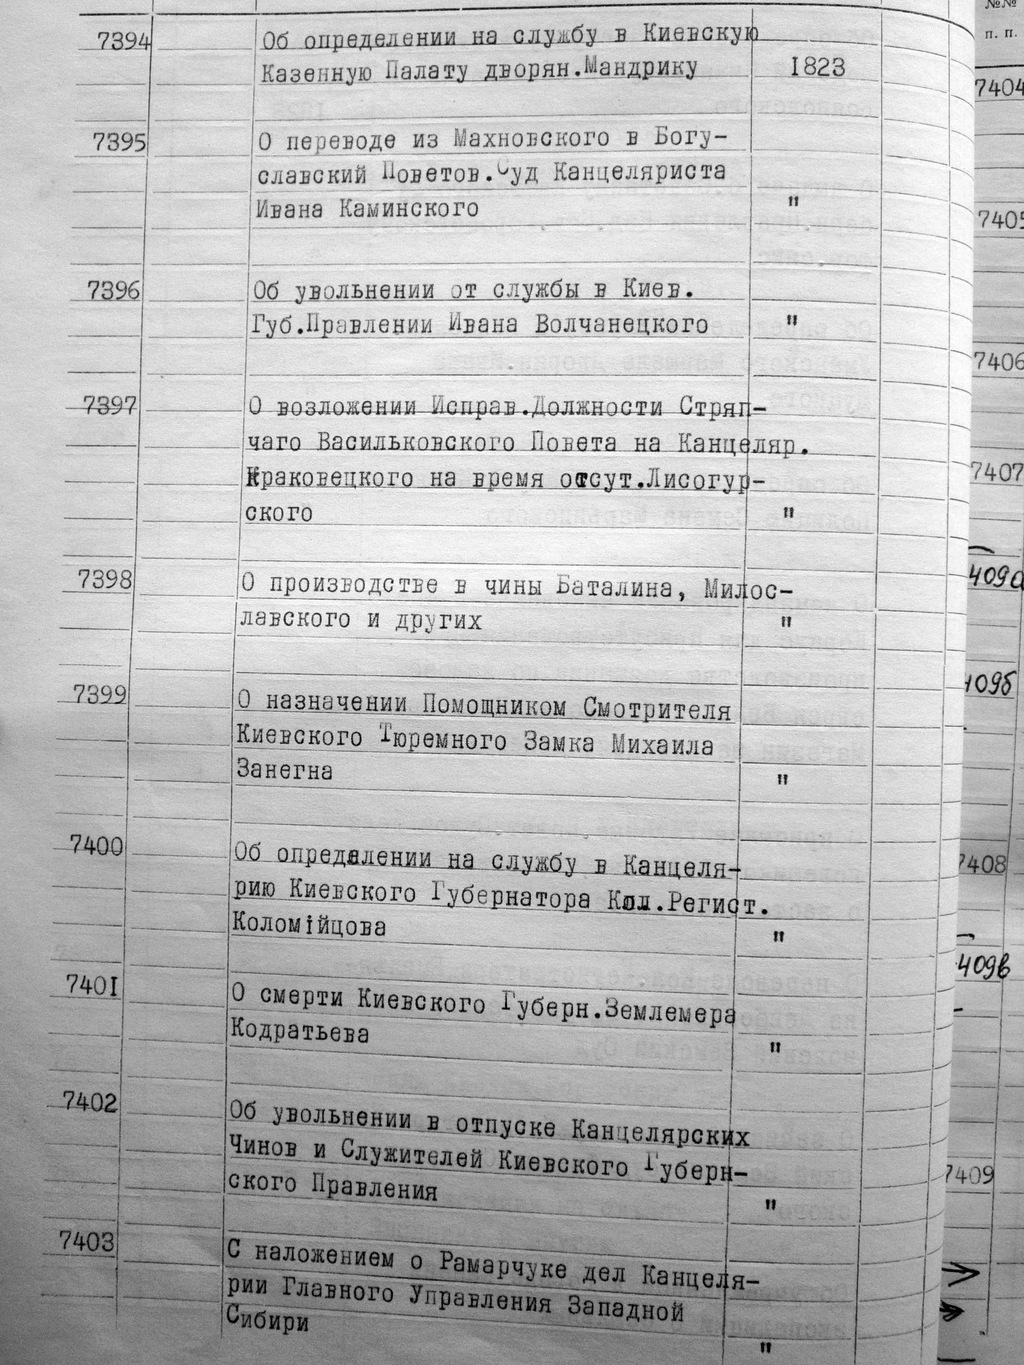 7394 Об определении на службу в Киевскую
Казенную Палату дворян.Мандрику 1823
7395 О переводе из Махновского в Богу-
славский Поветов.Суд Канцеляриста
Ивана Каминского "
7396 Об увольнении от службы в Киев.
Губ.Правлении Ивана Волчанецкого "
7397 О возложении Исправ.Должности Стряп-
чаго Васильковского Повета на Канцеляр.
Краковецкого на время отсут.Лисогур-
ского "
7398 О производстве в чины Баталина, Милос-
лавского и других "
7399 О назначении Помощником Смотрителя
Киевского Тюремного Замка Михаила
Занегна "
7400 Об определении на службу в Канцеля-
рию Киевского Губернатора Кол.Регист.
Коломiйцова "
7401 О смерти Киевского Губерн.Землемера
Кодратьева "
7402 Об увольнении в отпуске Канцелярских
Чинов и Служителей Киевского Губерн-
ского Правления "
7403 С наложением о Рамарчуке дел Канцеля-
рии Главного Управления Западной
Сибири "
№№
п. п.
7404
7405
7406
7407
409а
409б
7408
409в
7409